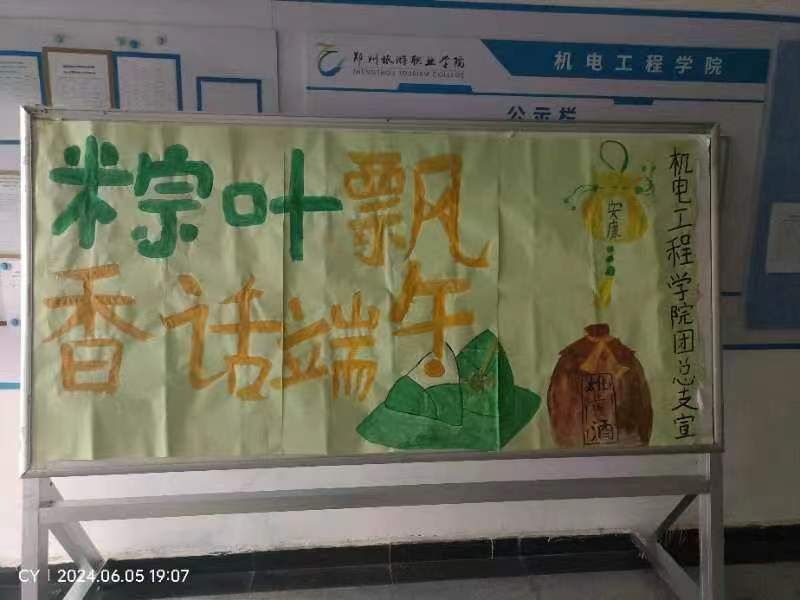 郑州旅游职业学院
ZHENGZHOU TOURISM COLLEGE
机电工程学院
公示栏
粽叶飘
香话端午
安康
酒
机电工程学院团总支宣
CY | 2024.06.05 19:07